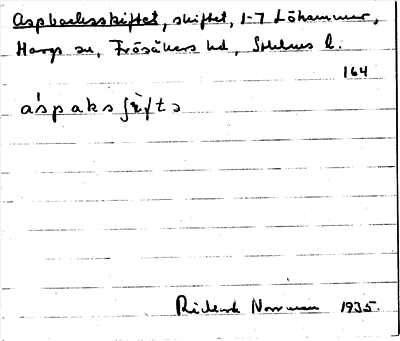 Aspbacksskiftet, skiftet, 1-7 Löhammar,
Hargs sn, Frösåkers hd, Sthlms l.
164
aspaksʃìfts
Richard Norrman 1935.